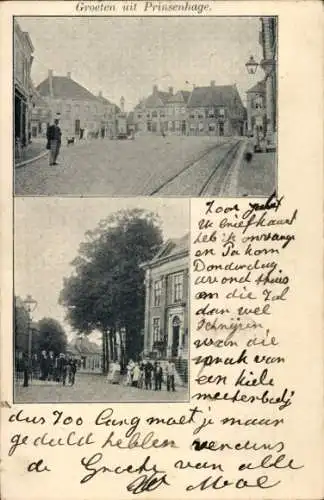 Groeten uit Prinsenhage.
Zoor je
Uw briefkaart
heb ik onvrange
en Pa kom
Donderdag
avond thuis
en die Zal
dan wel
Schrijven
van die
zaak van
een hiele
meeter
dus Zoo Lang moet je maar
geduld hebben verders
de Groete van alle